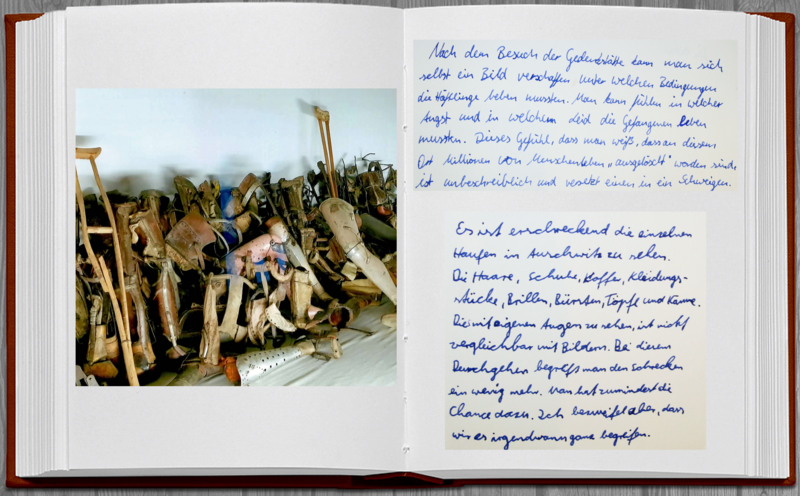 Nach dem Besuch der Gedenkstätte kann man sich
selbst ein Bild verschaffen unter welchen Bedingungen
die Häftlinge leben mussten. Man kann fühlen in welcher
Angst und in welchem Leid die Gefangenen leben
mussten. Dieses Gefühl, dass man weiß, dass an diesem
Ort Millionen von Menschenleben „ausgelöscht" worden sind,
ist unbeschreiblich und versetzt einen in ein Schweigen.
Es ist erschreckend die einzelnen
Haufen in Auschwitz zu sehen.
Die Haare, Schuhe, Koffer, Kleidungs-
stücke, Brillen, Bürsten, Töpfe und Kämme.
Die mit eigenen Augen zu sehen, ist nicht
vergleichbar mit Bildern. Bei diesem
Durchgehen begreift man den Schrecken
ein wenig mehr. Man hat zumindest die
Chance dazu. Ich bezweifel aber, dass
wir es irgendwann ganz begreifen.